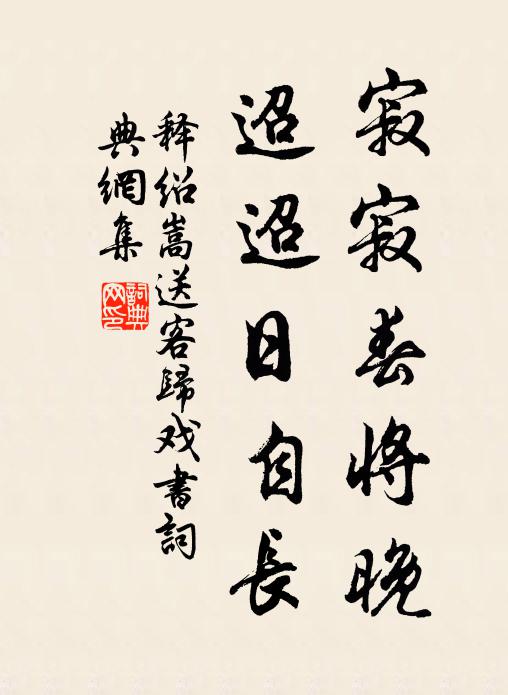 寂寂春将晚
迢迢日自長
释绍嵩送客歸戏書詞
典網集
詞典网印